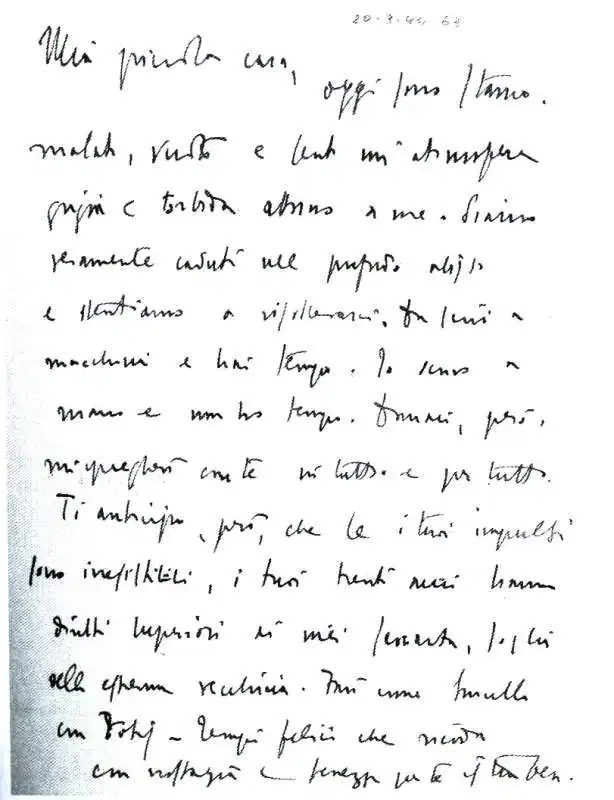 20·3·44 63
Mia piccola cara,
oggi sono stanco.
malato, vuoto e sento un'atmosfera
grigia e torbida attorno a me. Siamo
veramente caduti nel profondo abisso
e stentiamo a risollevarci. Tu scrivi a
macchina e hai tempo. Io scrivo a
mano e non ho tempo. Domani, però,
mi spiegherò con te in tutto e per tutto.
Ti anticipo, però, che se i tuoi impulsi
sono irresistibili, i tuoi trenti anni hanno
diritti superiori ai miei sessanta, soglia
della estrema vecchiaia. Fai come
con – tempi felici che ricordo
con nostalgia e tenerezza per te